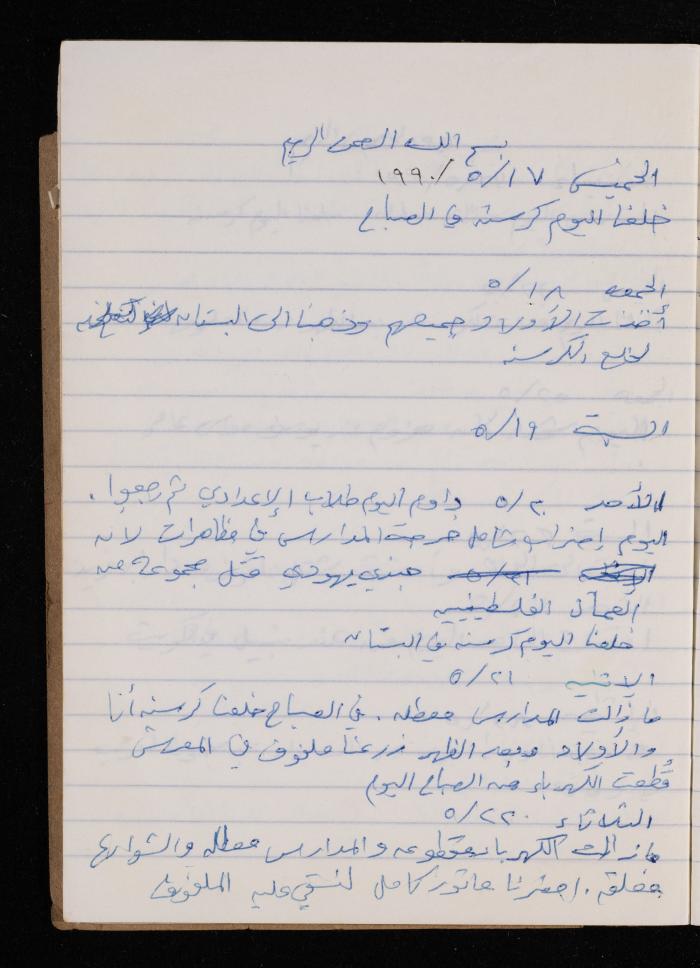 بسم الله الرحمن الرحيم
الخميس ١٧/٥/١٩٩٠
خلعنا اليوم كرسنه في الصباح
الجمعه ١٨/٥
أخذت الأولاد جميعهم وذهبنا الى البستان
لخلع الكرسنه
السبت ١٩/٥
الأحد ٢٠/٥ داوم اليوم طلاب الإعدادي ثم رجعوا.
اليوم إضراب شامل خرجت المدارس في مظاهرات لانه
جندي يهودي قتل مجموعة من
العمال الفلسطينيين
خلعنا اليوم كرسنه في البستان
الاثنين ٢١/٥
ما زالت المدارس معطله. في الصباح خلعنا كرسنه أنا
والأولاد وبعد الظهر زرعنا ملفوف في المعرش
قُطعت الكهرباء من الصباح اليوم
الثلاثاء ٢٢/٥
ما زالت الكهرباء مقطوعه والمدارس معطله والشوارع
مغلقه. احضرنا ماتور كامل لنسقي عليه الملفوف